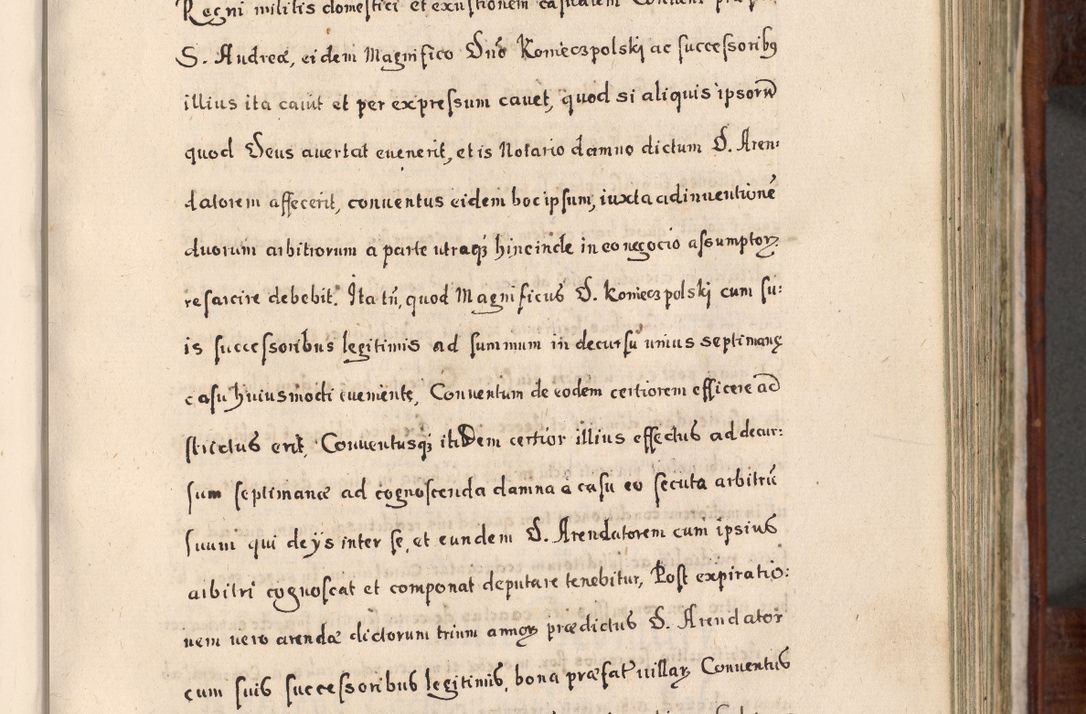 Regni militis domestici et exustionem casualem Conuent
S. Andreæ, eidem Magnifico Dnō Koniecspolskj ac successoribꝰ
illius ita cauit et per expressum cauet, quod si aliquis ipsorū
quod Deus auertat euenerit, et is Notario damno dictum D. Aren:
datorem affecerit, conuentus eidem hoc ipsum, iuxta adinuentionē
duorum arbitrorum a parte utraqꝫ hincinde in eo negocio assumptoꝝ
resarcire debebit. Ita tñ, quod Magnificus D. Koniecspolskj cum su:
is successoribus legitimis ad summum in decursũ unius septimanę
casu huiusmodi eueniente, Conuentum de eodem certiorem efficere ad
strictus erit, Conuentusqꝫ itidem certior illius effectus ad decur:
sum septimanæ ad cognoscenda damna è casu eo secuta arbitrū
suum qui de ys inter se, et eundem D. Arendatorem cum ipsius
arbitri cognoscat et componat deputare tenebitur, Post expiratio:
nem uero arendæ dictorum trium annoꝝ prædictus D. Arendator
cum suis successoribus legitimis, bona præfat' uillaꝝ Conuentus